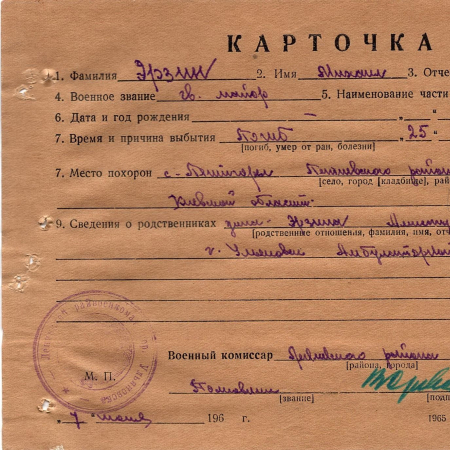 КАРТОЧКА
1. Фамилия Эрзин 2. Имя Михаил 3. Отче
4. Военное звание гв. майор 5. Наименование части
6. Дата и год рождения — „ „
7. Время и причина выбытия Погиб „25“
[погиб, умер от ран, болезни]
7. Место похорон с-  района
[село, город [кладбище], рай
Киевской области
9. Сведения о родственниках жена-
[родственные отношения, фамилия, имя, отч
г. Ульяновск
Военный комиссар Ленинского района
[района, города]
М. П. Полковник
[звание] [подп
„7“ июня 196 г. 1965